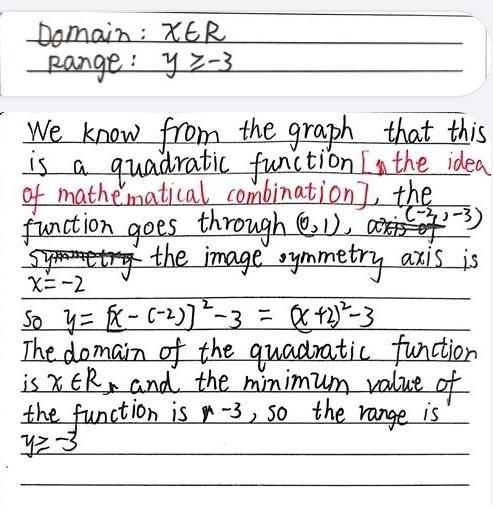 Domain: x∈R
Range: y ≥-3
We know from the graph that this
is a quadratic function [ the idea
of mathematical combination], the
function goes through (0,1), axis of (-2,-3)
symmetry the image symmetry axis is
x=-2
So y= [x-(-2)]²-3 = (x+2)²-3
The domain of the quadratic function
is x∈R, and the minimum value of
the function is -3, so the range is
y≥-3